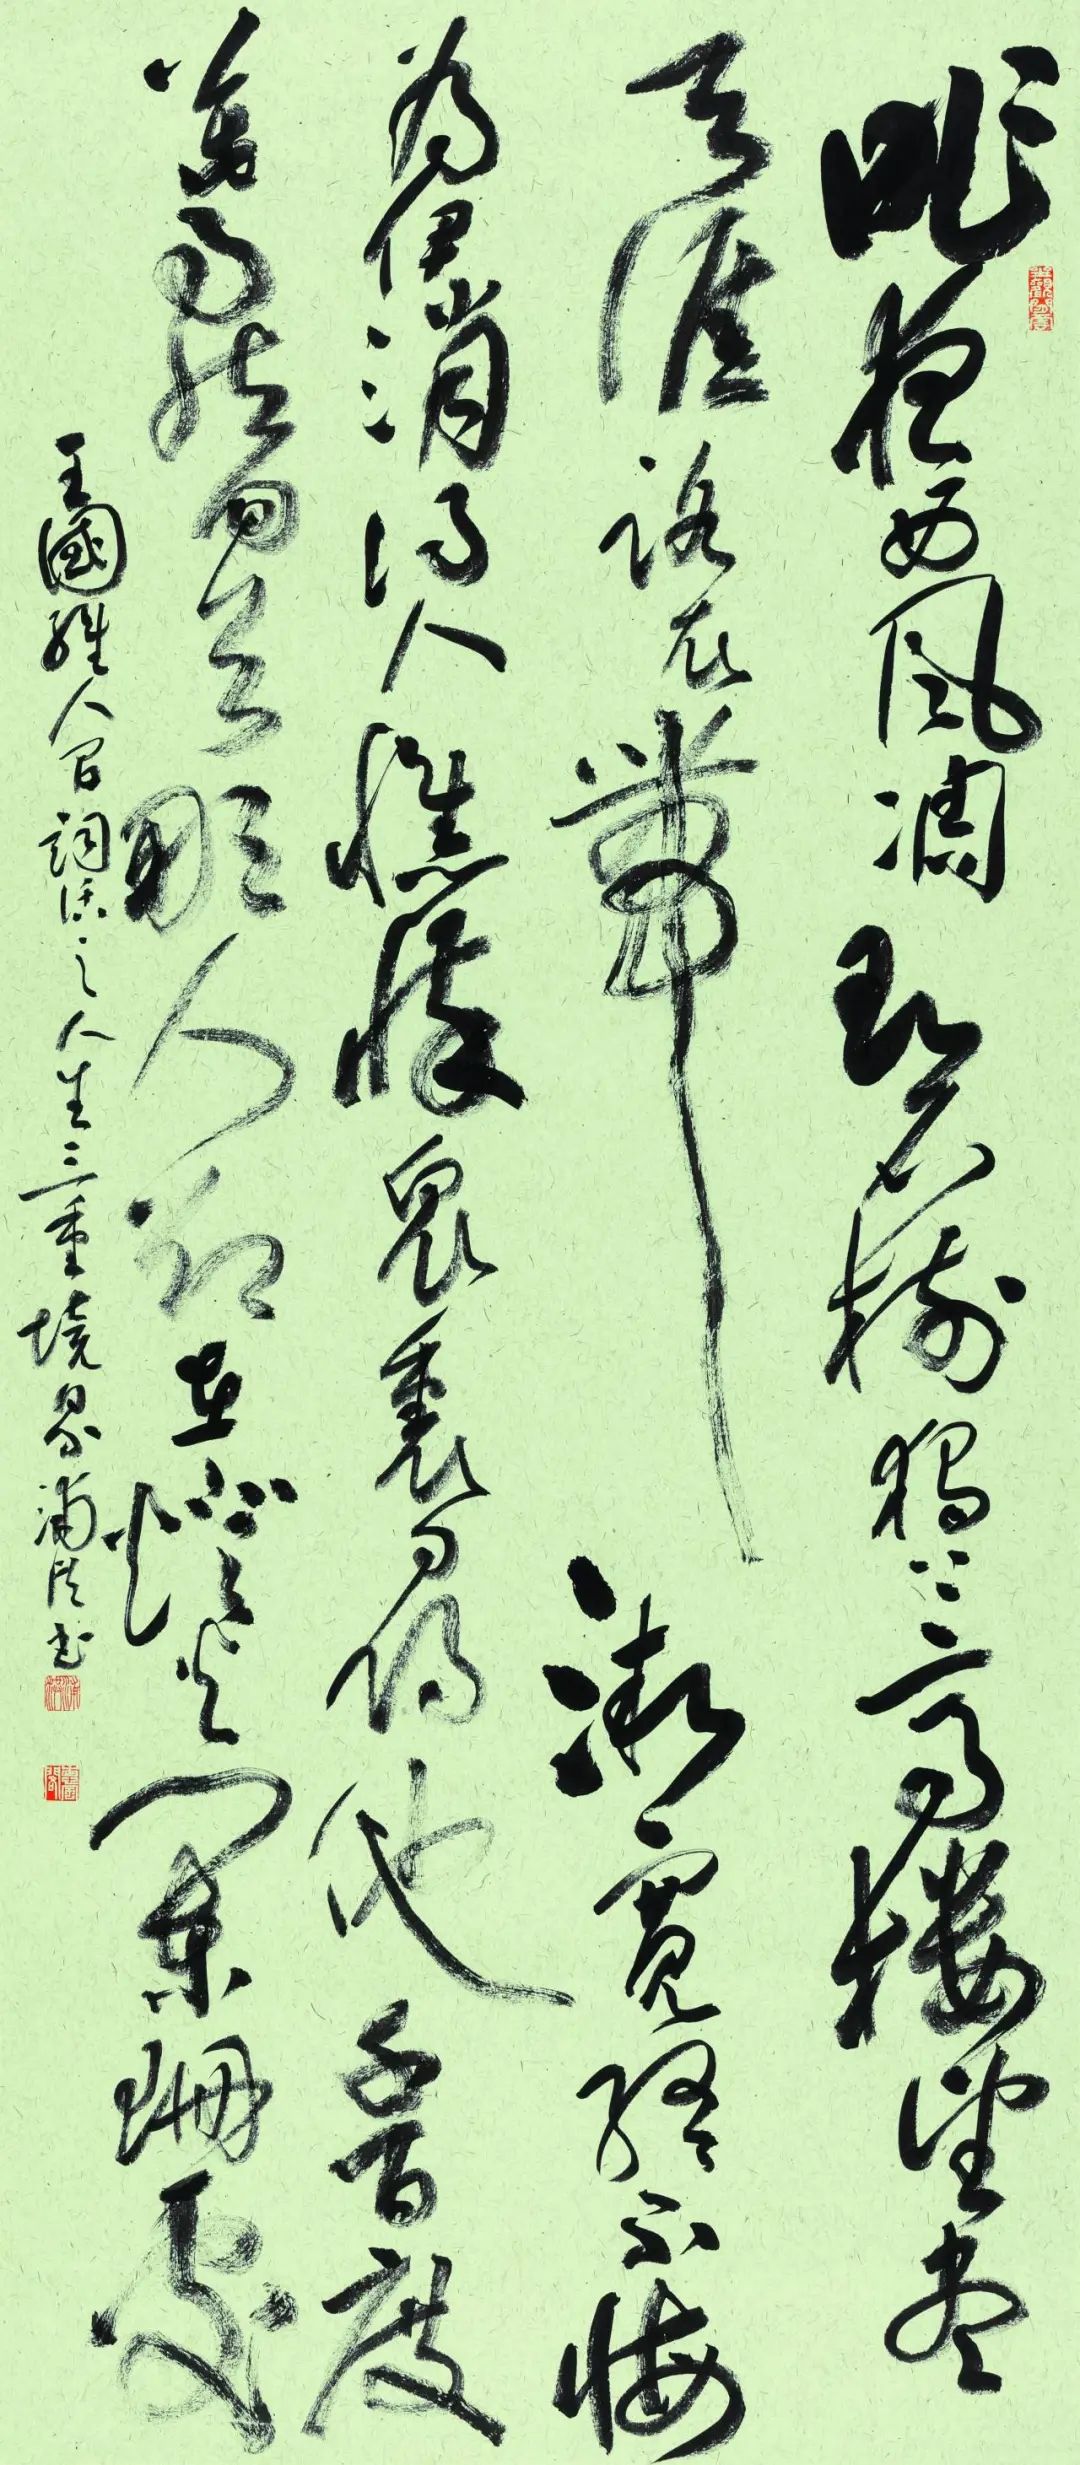 昨夜西風凋碧樹獨上高樓望盡
天涯路衣帶漸寬終不悔
為伊消得人憔悴眾裏尋他千百度
驀然回首那人却在燈火闌珊處
王國維人間詞話之人生三重境界浦書